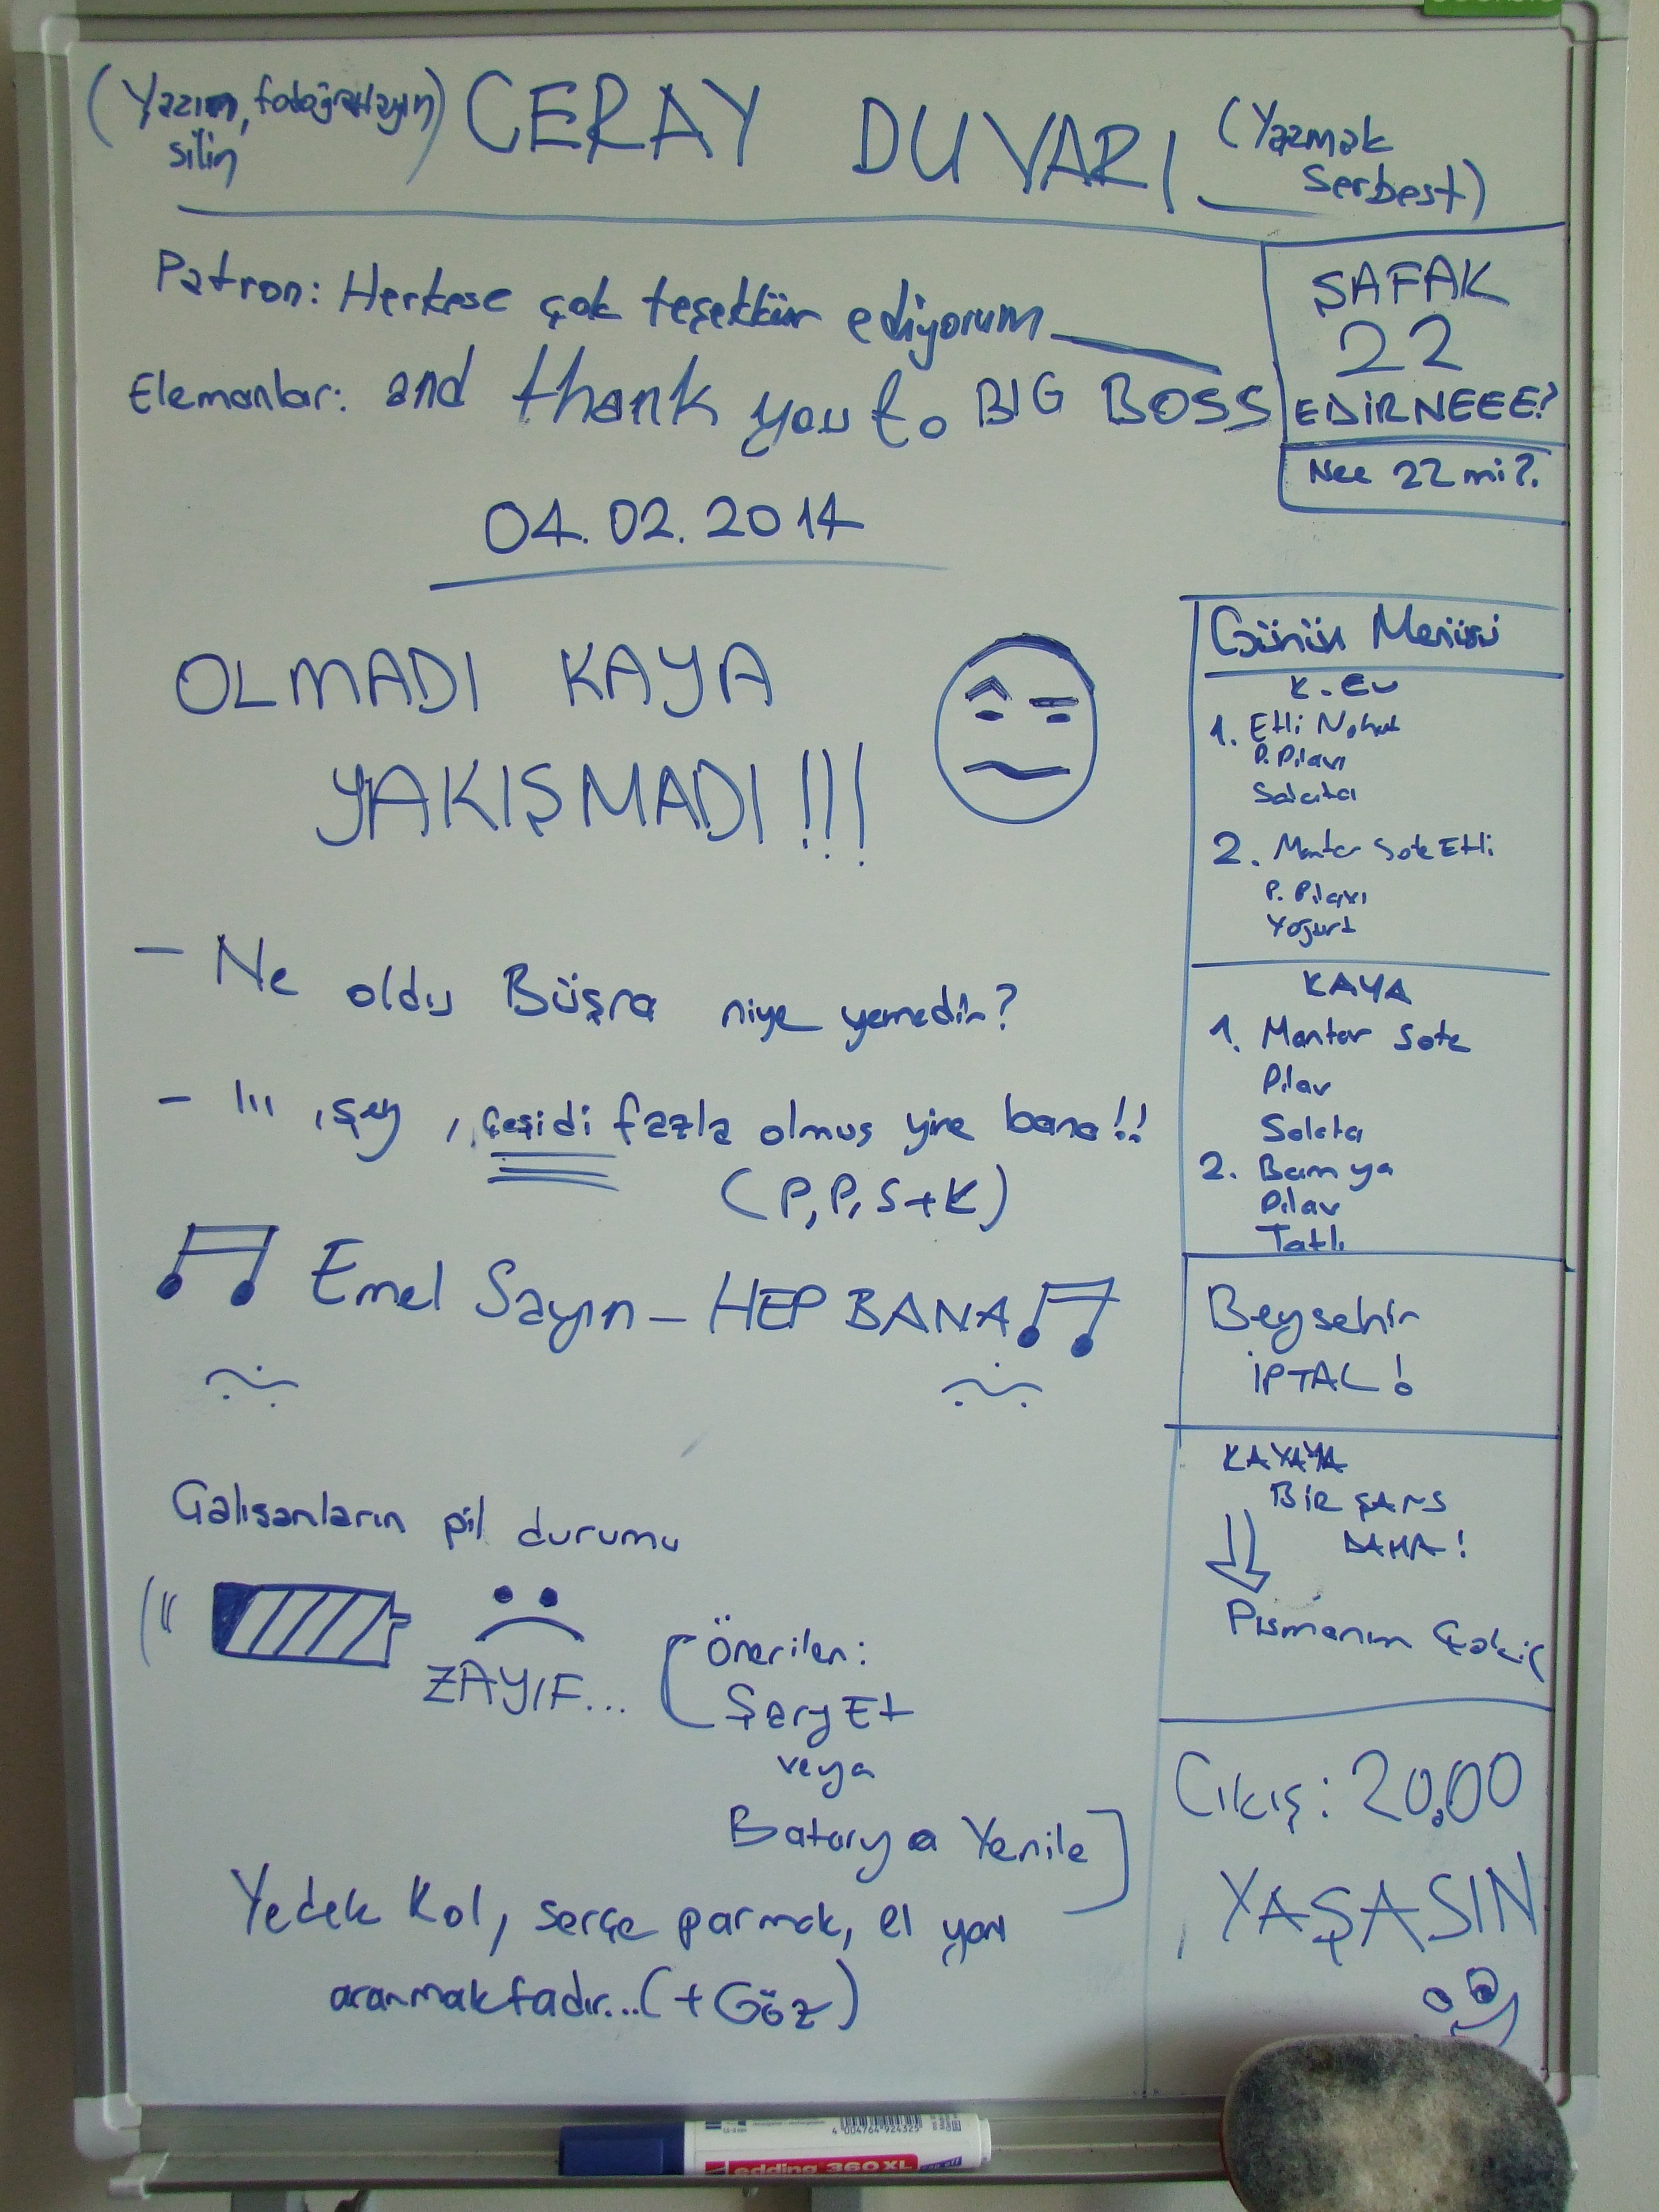 (Yazın, fotoğraflayın)
silin
CERAY DUVARI
(Yazmak
serbest)
Patron: Herkese çok teşekkür ediyorum
Elemanlar: and thank you to BIG BOSS
ŞAFAK
22
EDİRNEEE?
Nee 22 mi?
04.02.2014
OLMADI KAYA
YAKIŞMADI!!!
- Ne oldu Büşra niye yemedin?
- Iıı, şey, çeşidi fazla olmuş yine bana!!
(P, P, S+K)
Emel Sayın - HEP BANA
Günün Menüsü
K. Ev
1. Etli Nohut
P. Pilavı
Salata
2. Mantar Sote Etli
P. Pilavı
Yoğurt
KAYA
1. Mantar Sote
Pilav
Salata
2. Bamya
Pilav
Tatlı
Beyşehir
İPTAL!
KAYAYA
BİR ŞANS
DAHA!
Pişmanım
Çıkış: 20.00
YAŞASIN
Çalışanların pil durumu
ZAYIF...
Önerilen:
Şarj Et
veya
Batarya Yenile
Yedek kol, serçe parmak, el yanı
aranmaktadır...(+Göz)
4 004764 924325
edding 360 XL